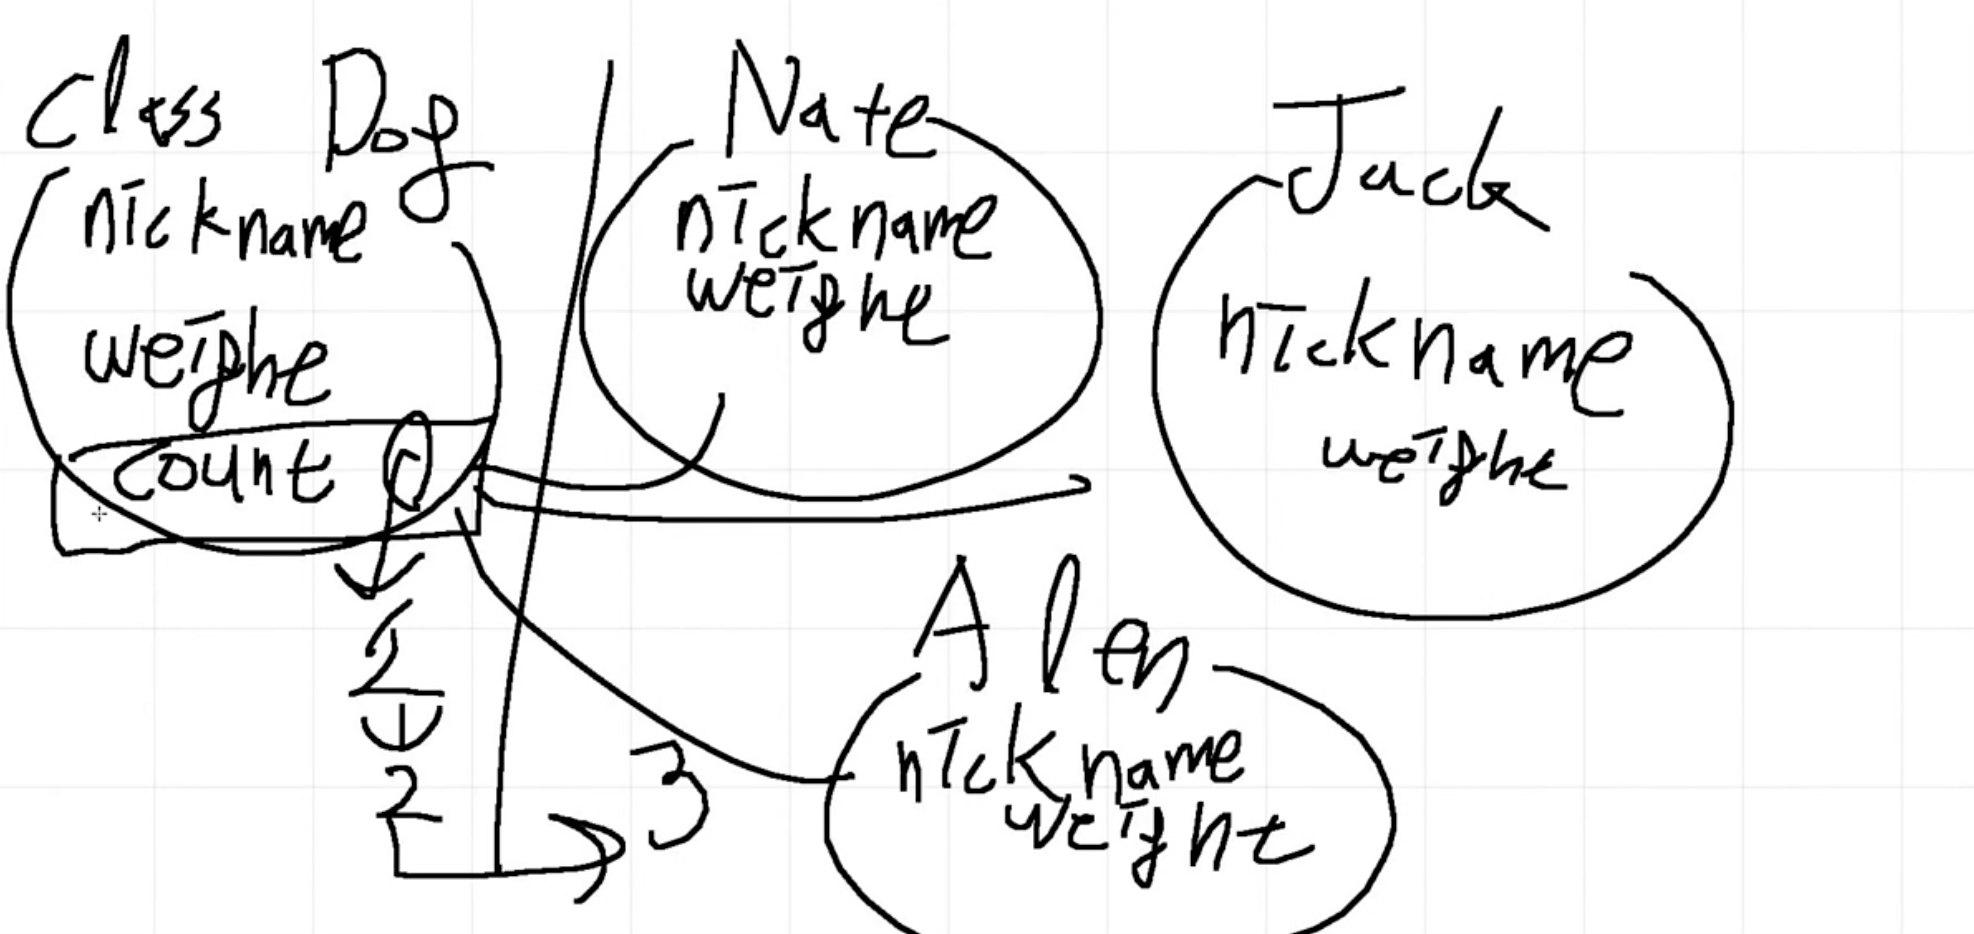 Class Dog
nickname
weight
count 0
1
2
3
Nate
nickname
weight
Jack
nickname
weight
Alen
nickname
weight